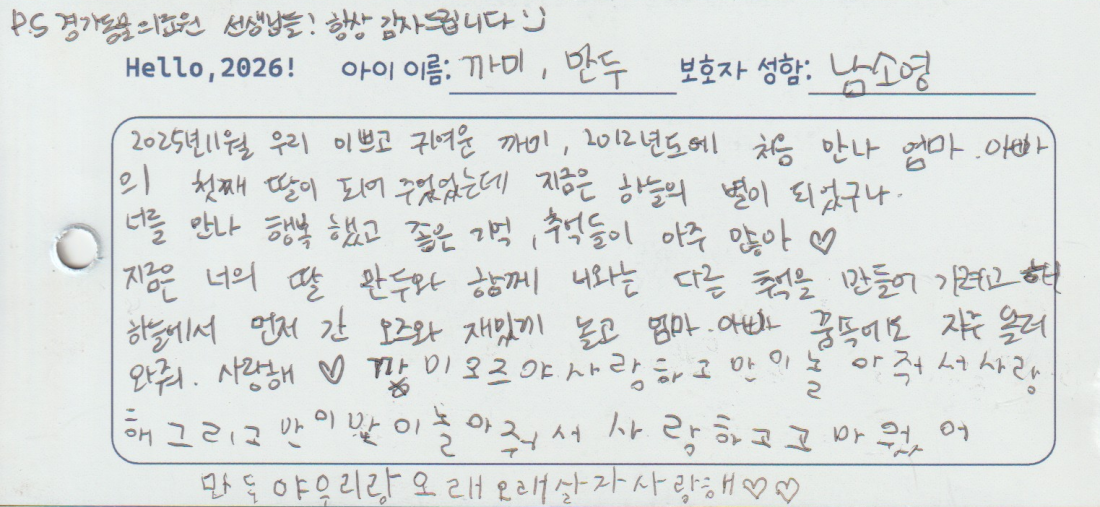 P.S 경기동물의료원 선생님들! 항상 감사드립니다 :)
Hello,2026! 아이 이름: 까미, 만두 보호자 성함: 남소영
2025년11월 우리 이쁘고 귀여운 까미, 2012년도에 처음 만나 엄마.아빠
의 첫째 딸이 되어 주었었는데 지금은 하늘의 별이 되었구나.
너를 만나 행복 했고 좋은 기억, 추억들이 아주 많아 ♡
지금은 너의 딸 만두와 함께 너와는 다른 추억을 만들어 가려고 해
하늘에서 먼저 간 오즈와 재밌게 놀고 엄마.아빠 꿈속에도 자주 놀러
와줘. 사랑해 ♡ 까미오즈야사랑하고만이놀아줘서사랑
해그리고만이만이놀아줘서사랑하고고마웠어
만두야우리랑오래오래살자사랑해♡♡